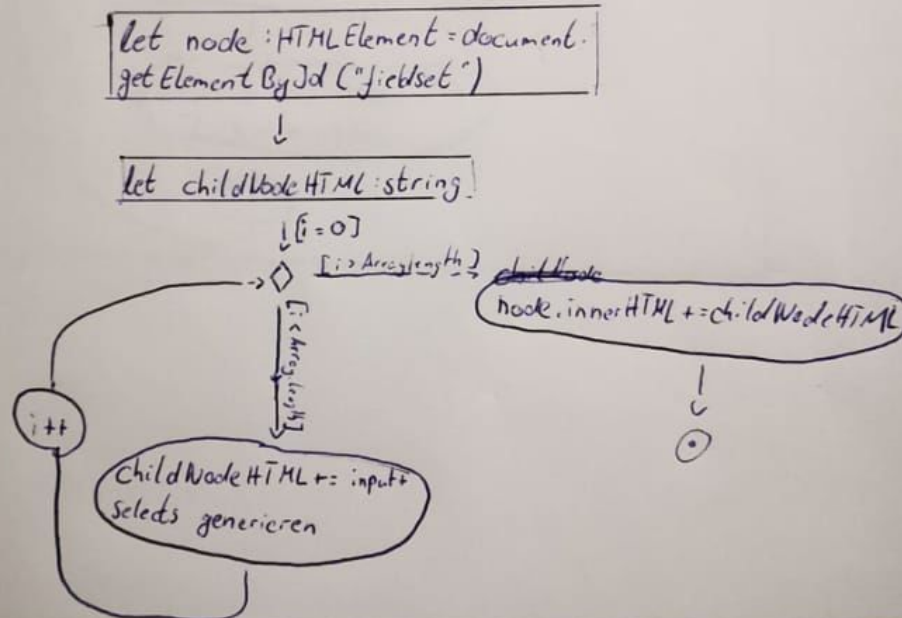 let node : HTMLElement = document.
getElementById ("fieldset")
let childNodeHTML : string
[i = 0]
[i > Array.length]
childNode
node.innerHTML += childNodeHTML
[i < Array.length]
i++
childNodeHTML += input+
selects generieren